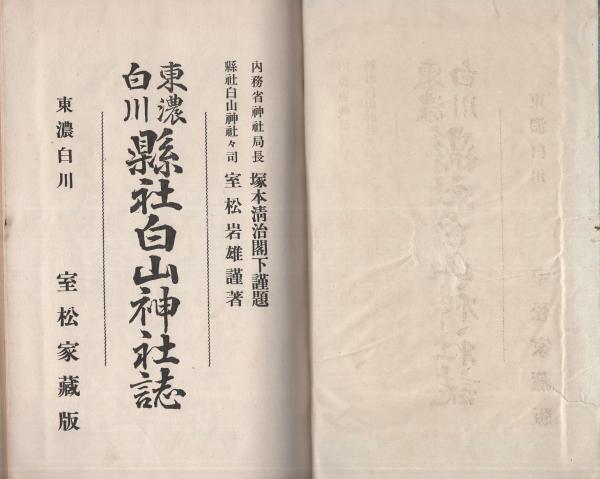 内務省神社局長 塚本淸治閣下謹題
縣社白山神社々司 室松岩雄謹著
東濃
白川
縣社白山神社誌
東濃白川 室松家藏版